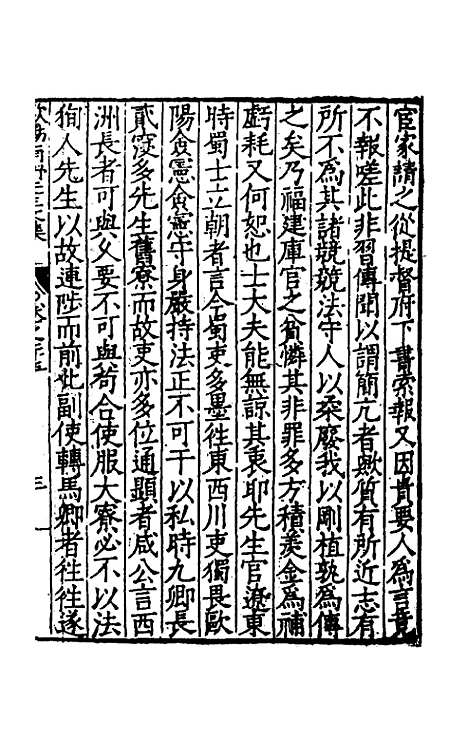 宦家請之從提督府下書索報又因貴要人為言竟
不報嗟此非習傳聞以謂簡亢者歟質有所近志有
所不為其諸競競法守人以柔廢我以剛植孰為傳
之矣乃福建庫官之貧憐其非罪多方積羨金為補
虧耗又何恕也士大夫能無諒其衷耶先生官遼東
時蜀士立朝者言令蜀吏多墨徃東西川吏獨畏歐
陽僉憲僉憲守身嚴持法正不可干以私時九卿長
貳寔多先生舊寮而故吏亦多位通顯者咸公言西
洲長者可與父要不可與茍合使服大寮必不以法
狥人先生以故連陟而前此副使轉馬卿者徃徃遂